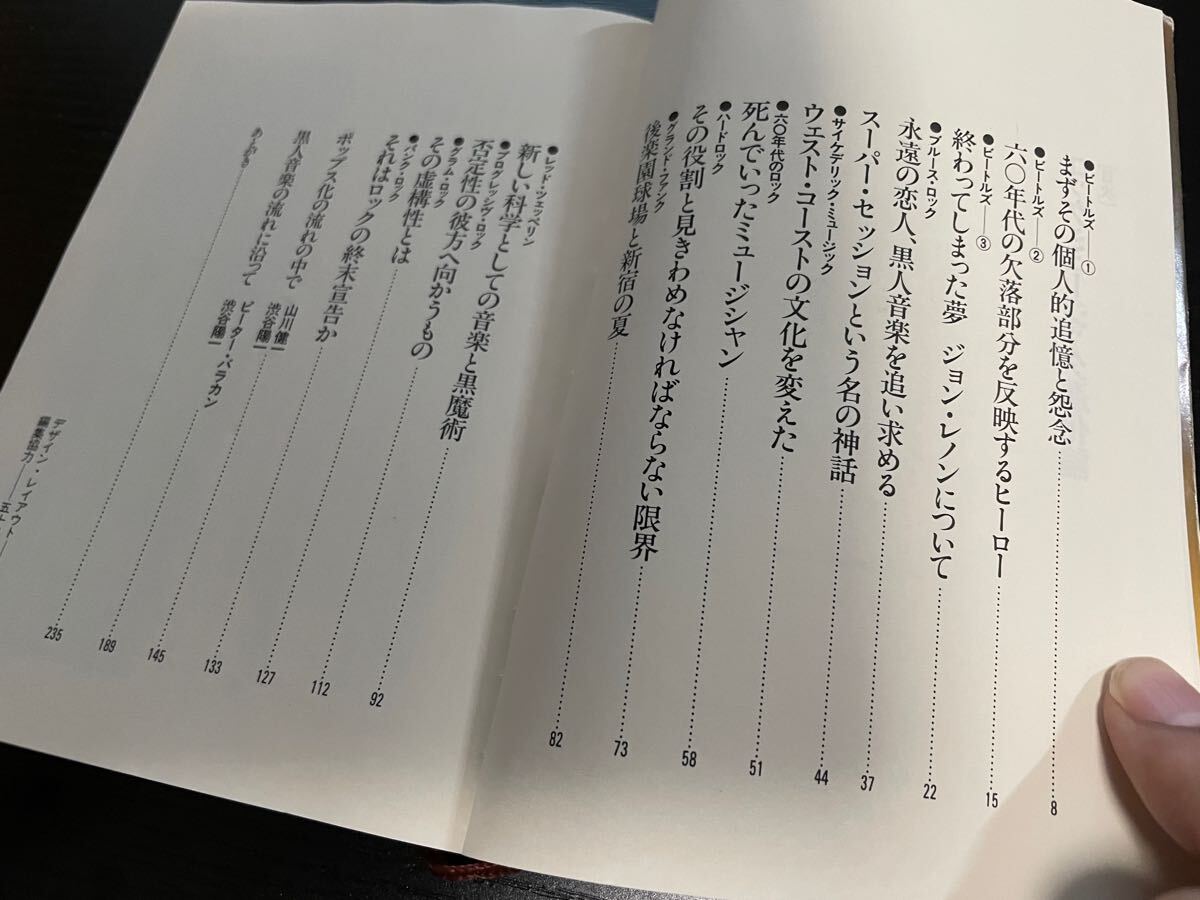 ●ビートルズ——①
まずその個人的追憶と怨念……8
●ビートルズ——②
六〇年代の欠落部分を反映するヒーロー……15
●ビートルズ——③
終わってしまった夢　ジョン・レノンについて……22
●ブルース・ロック
永遠の恋人、黒人音楽を追い求める……37
スーパー・セッションという名の神話……44
●サイケデリック・ミュージック
ウェスト・コーストの文化を変えた……51
●六〇年代のロック
死んでいったミュージシャン……58
●ハードロック
その役割と見きわめなければならない限界……73
●グランド・ファンク
後楽園球場と新宿の夏……82
●レッド・ツェッペリン
新しい科学としての音楽と黒魔術……92
●プログレッシヴ・ロック
否定性の彼方へ向かうもの……112
●グラム・ロック
その虚構性とは……127
●パンク・ロック
それはロックの終末宣告か……133
ポップス化の流れの中で　山川健一　渋谷陽一……145
黒人音楽の流れに沿って　ピーター・バラカン　渋谷陽一……189
あとがき……235
デザイン・レイアウト
編集協力——五